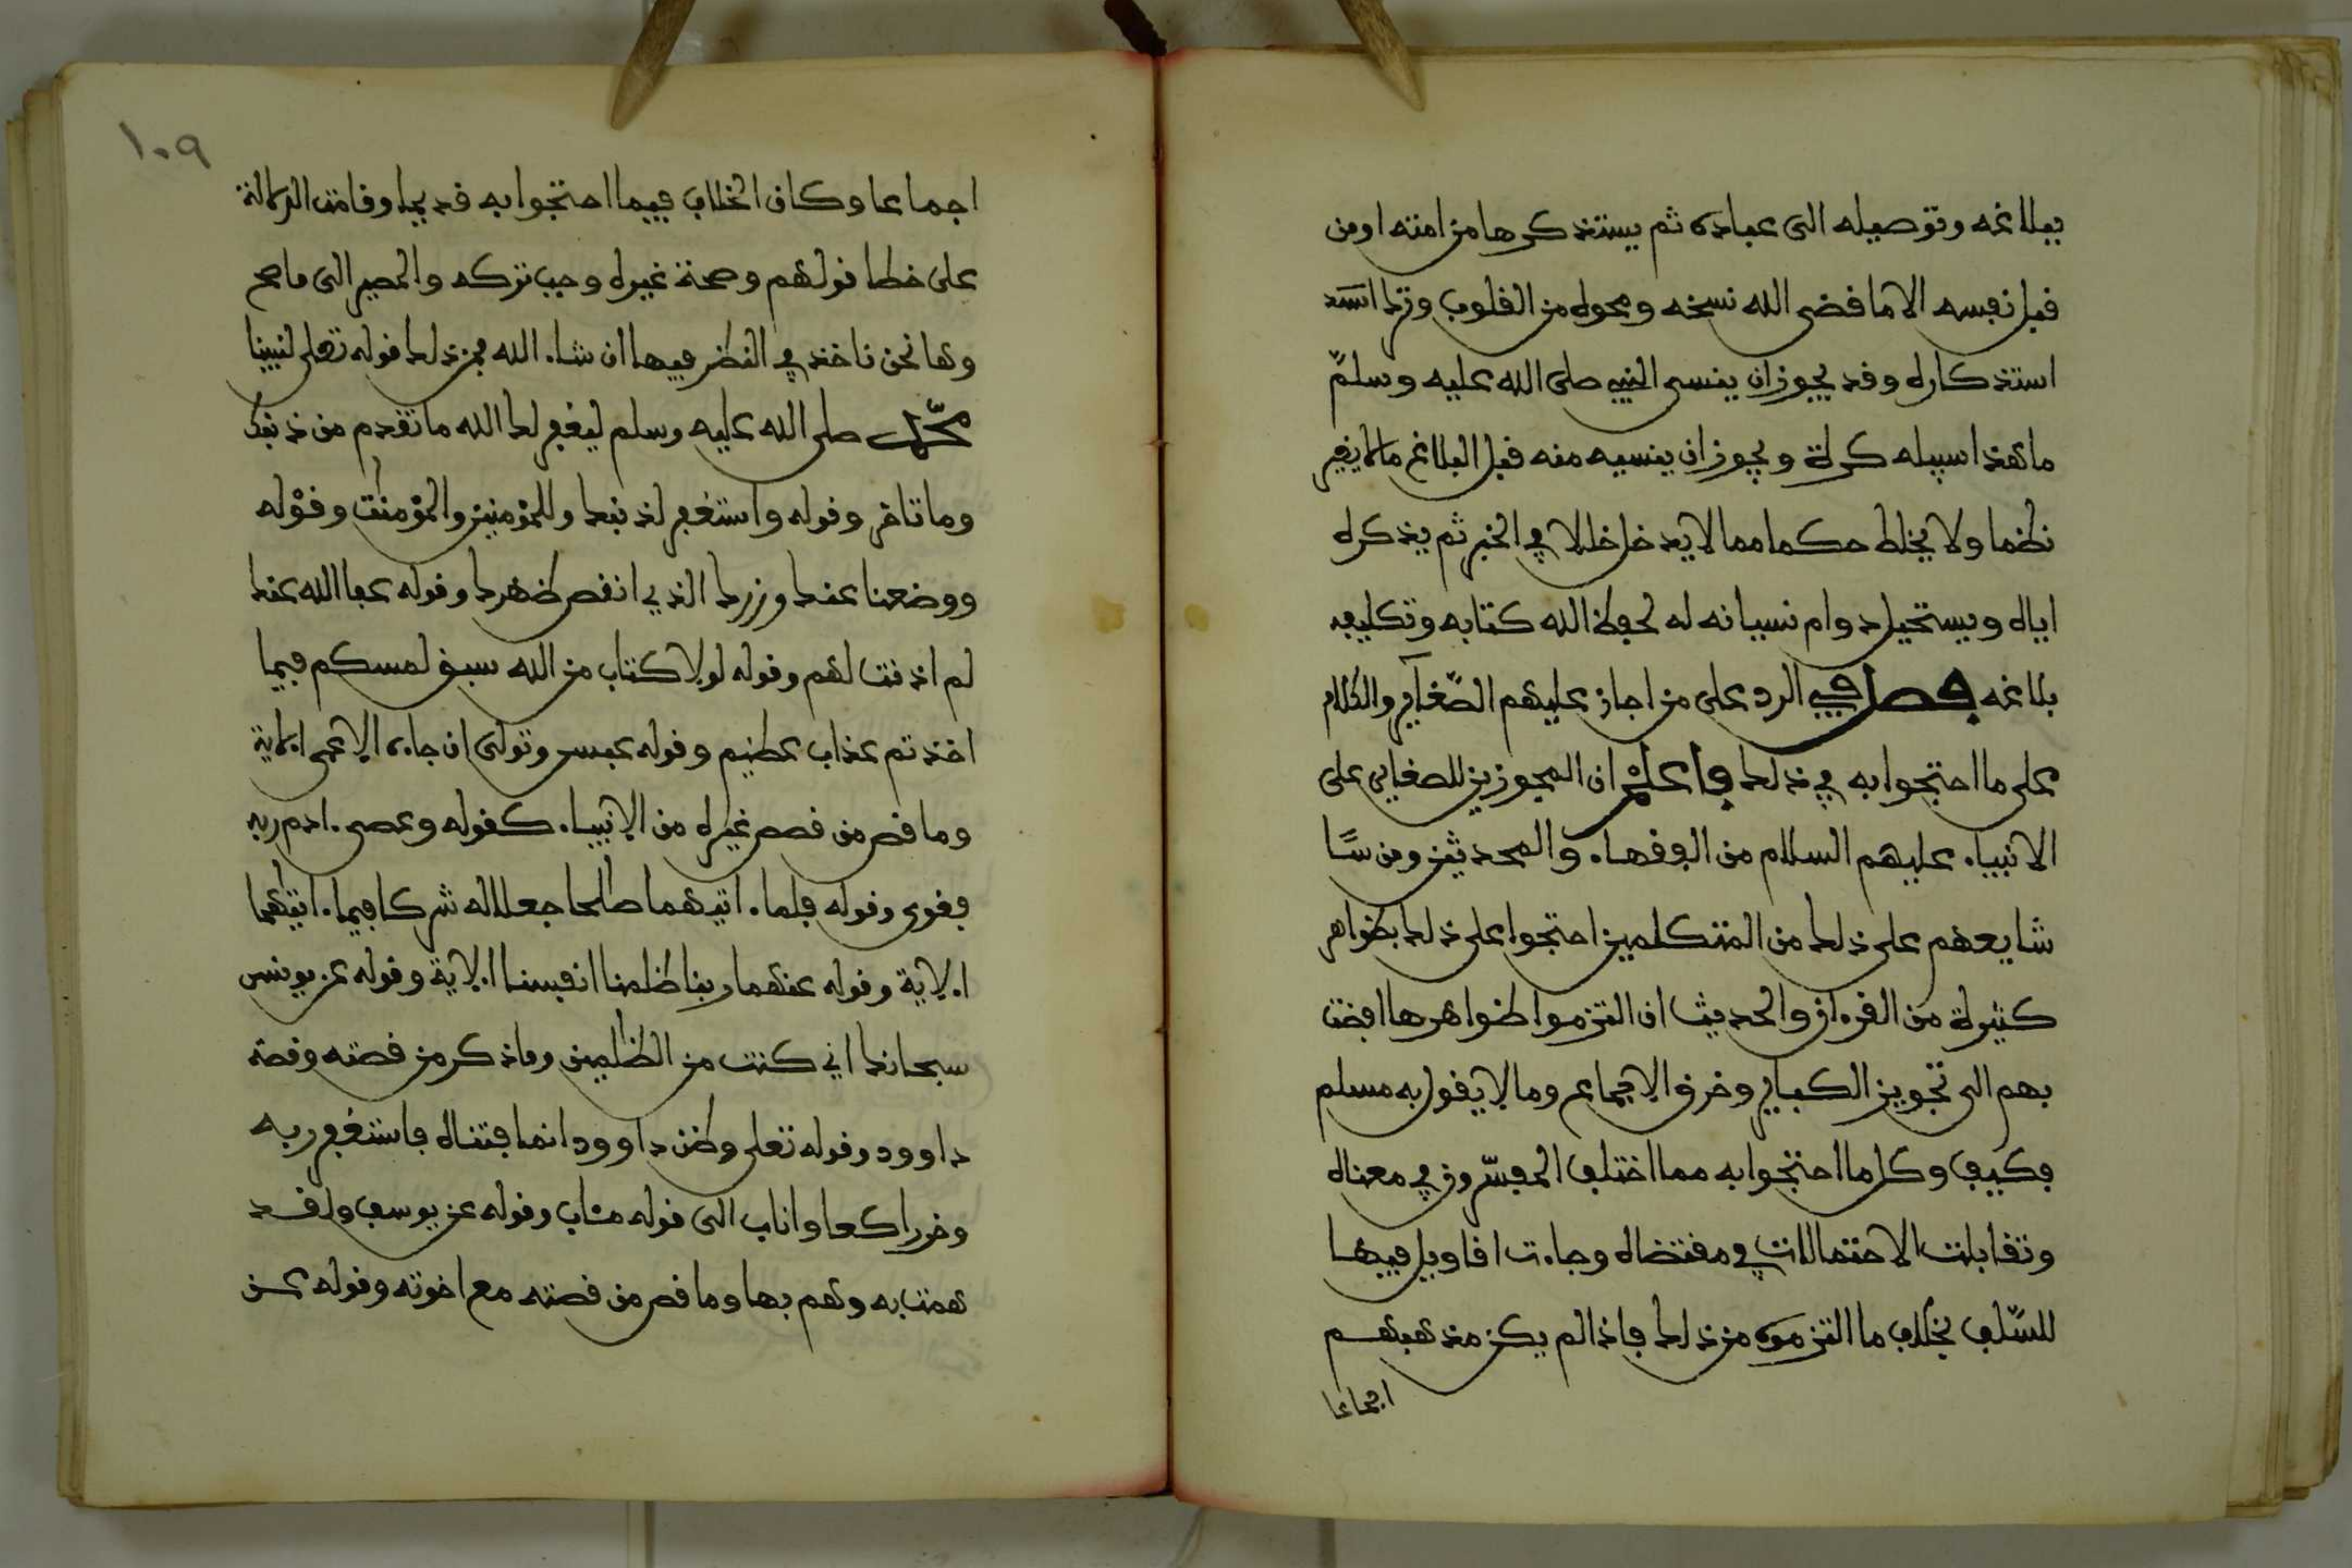 ببلاغه وتوصيله الى عباده ثم يستذكرها من امته او من
قبل نفسه الا ما قضى الله نسخه ومحوه من القلوب وترك
استذكاره وقد يجوز ان ينسى النبي صلى الله عليه وسلم
ما هذا سبيله كرة ويجوز ان ينسيه منه قبل البلاغ ما لا يغير
نظما ولا يخلط حكما مما لا يدخل خللا في الخبر ثم يذكره
اياه ويستحيل دوام نسيانه له لحفظ الله كتابه وتكليفه
بلاغه فصل في الرد على من اجاز عليهم الصغاير والكلام
على ما احتجوا به في ذلك واعلم ان المجوزين للصغاير على
الانبياء عليهم السلام من الفقهاء والمحدثين ومن
شايعهم على ذلك من المتكلمين احتجوا على ذلك بظواهر
كثيرة من القرءان والحديث ان التزموا ظواهرها افضت
بهم الى تجويز الكباير وخرق الاجماع وما لا يقول به مسلم
فكيف وكل ما احتجوا به مما اختلف المفسرون في معناه
وتقابلت الاحتمالات في مقتضاه وجاءت اقاويل فيها
للسلف بخلاف ما التزموه من ذلك فاذا لم يكن مذهبهم
اجماعا
١٠٩
اجماعا وكان الخلاف فيما احتجوا به قديما وقامت الدلالة
على خطا قولهم وصحة غيره وجب تركه والمصير الى ما صح
وها نحن ناخذ في النظر فيها ان شاء الله فمن ذلك قوله تعلى لنبينا
محمد صلى الله عليه وسلم ليغفر لك الله ما تقدم من ذنبك
وما تاخر وقوله واستغفر لذنبك وللمؤمنين والمؤمنت وقوله
ووضعنا عنك وزرك الذي انقض ظهرك وقوله عفا الله عنك
لم اذنت لهم وقوله لولا كتاب من الله سبق لمسكم فيما
اخذتم عذاب عظيم وقوله عبس وتولى ان جاءه الاعمى الاية
وما قص من قصص غيره من الانبياء كقوله وعصى ءادم ربه
فغوى وقوله فلما ءاتيهما صالحا جعلا له شركا فيما ءاتيهما
الاية وقوله عنهما ربنا ظلمنا انفسنا الاية وقوله عن يونس
سبحانك اني كنت من الظلمين وما ذكر من قصته وقصة
داوود وقوله تعلى وظن داوود انما فتناه فاستغفر ربه
وخر راكعا واناب الى قوله مئاب وقوله عن يوسف ولقد
همت به وهم بها وما قص من قصته مع اخوته وقوله عن